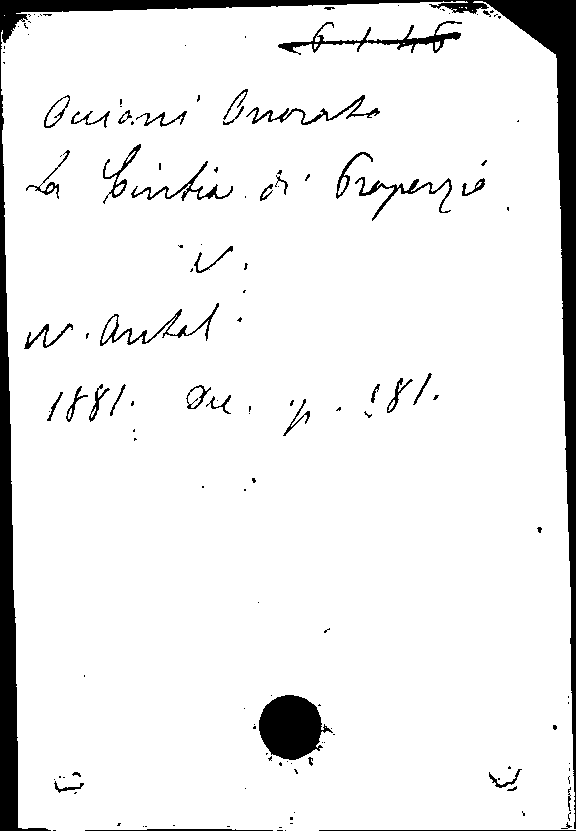 6146
Occioni Onorato
La Cintia di Properzio
V.
N. Antol.
1881. Dic. p. 181.